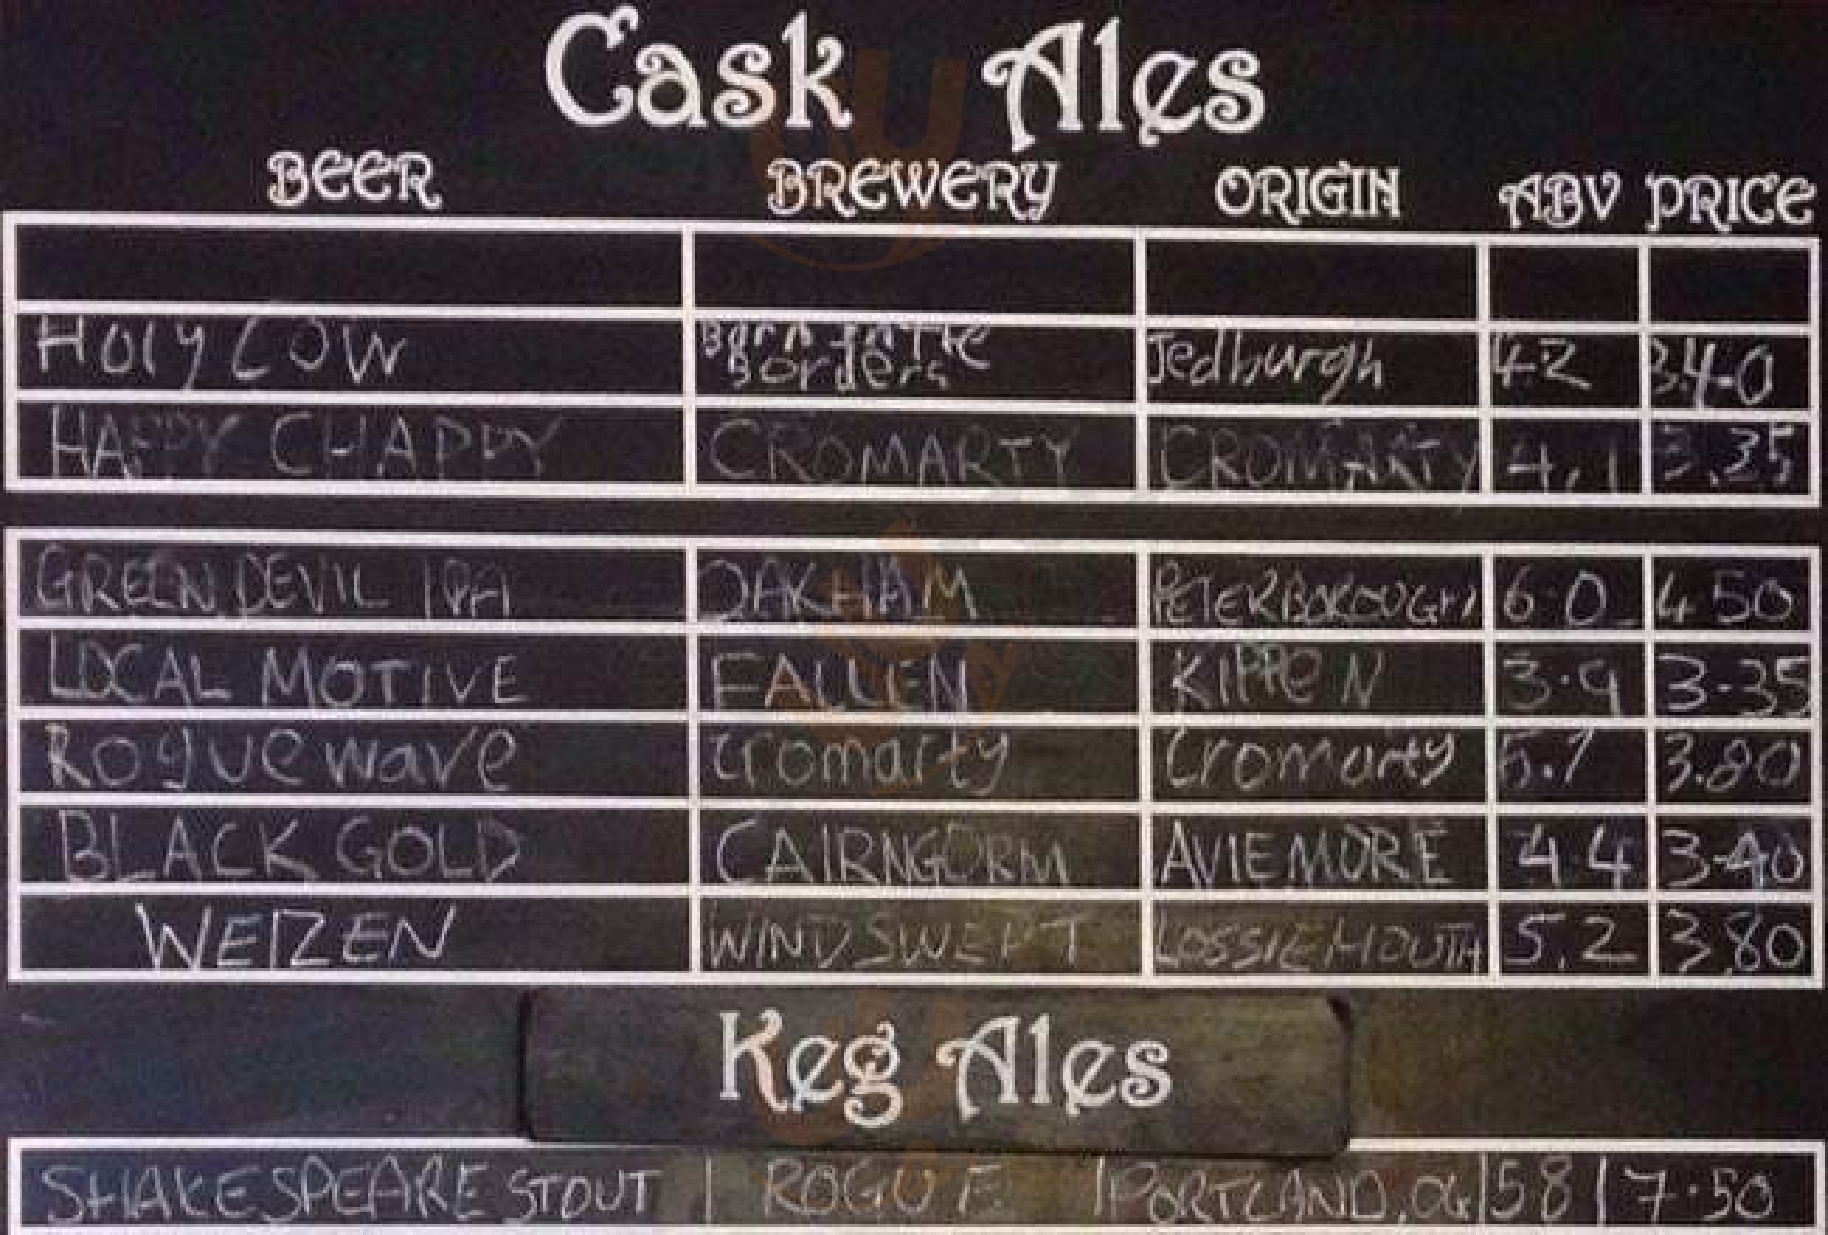 Cask Ales
BEER BREWERY ORIGIN ABV PRICE
Holy Cow Born in the Borders Jedburgh 4.2 3.40
HAPPY CHAPPY CROMARTY CROMARTY 4.1 3.35
GREEN DEVIL IPA OAKHAM PETERBOROUGH 6.0 4.50
LOCAL MOTIVE FALLEN KIPPEN 3.9 3.35
Rogue wave Cromarty Cromarty 5.7 3.80
BLACK GOLD CAIRNGORM AVIEMORE 4.4 3.40
WEIZEN WINDSWEPT LOSSIEMOUTH 5.2 3.80
Keg Ales
SHAKESPEARE STOUT | ROGUE | PORTLAND, | 58 | 7.50